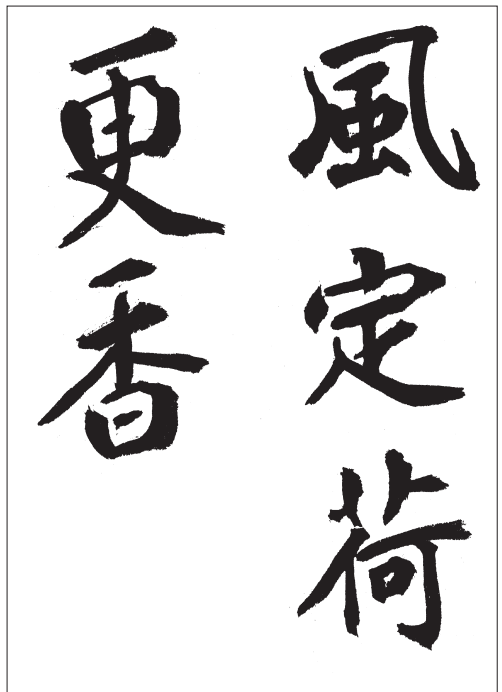 風定荷
更香